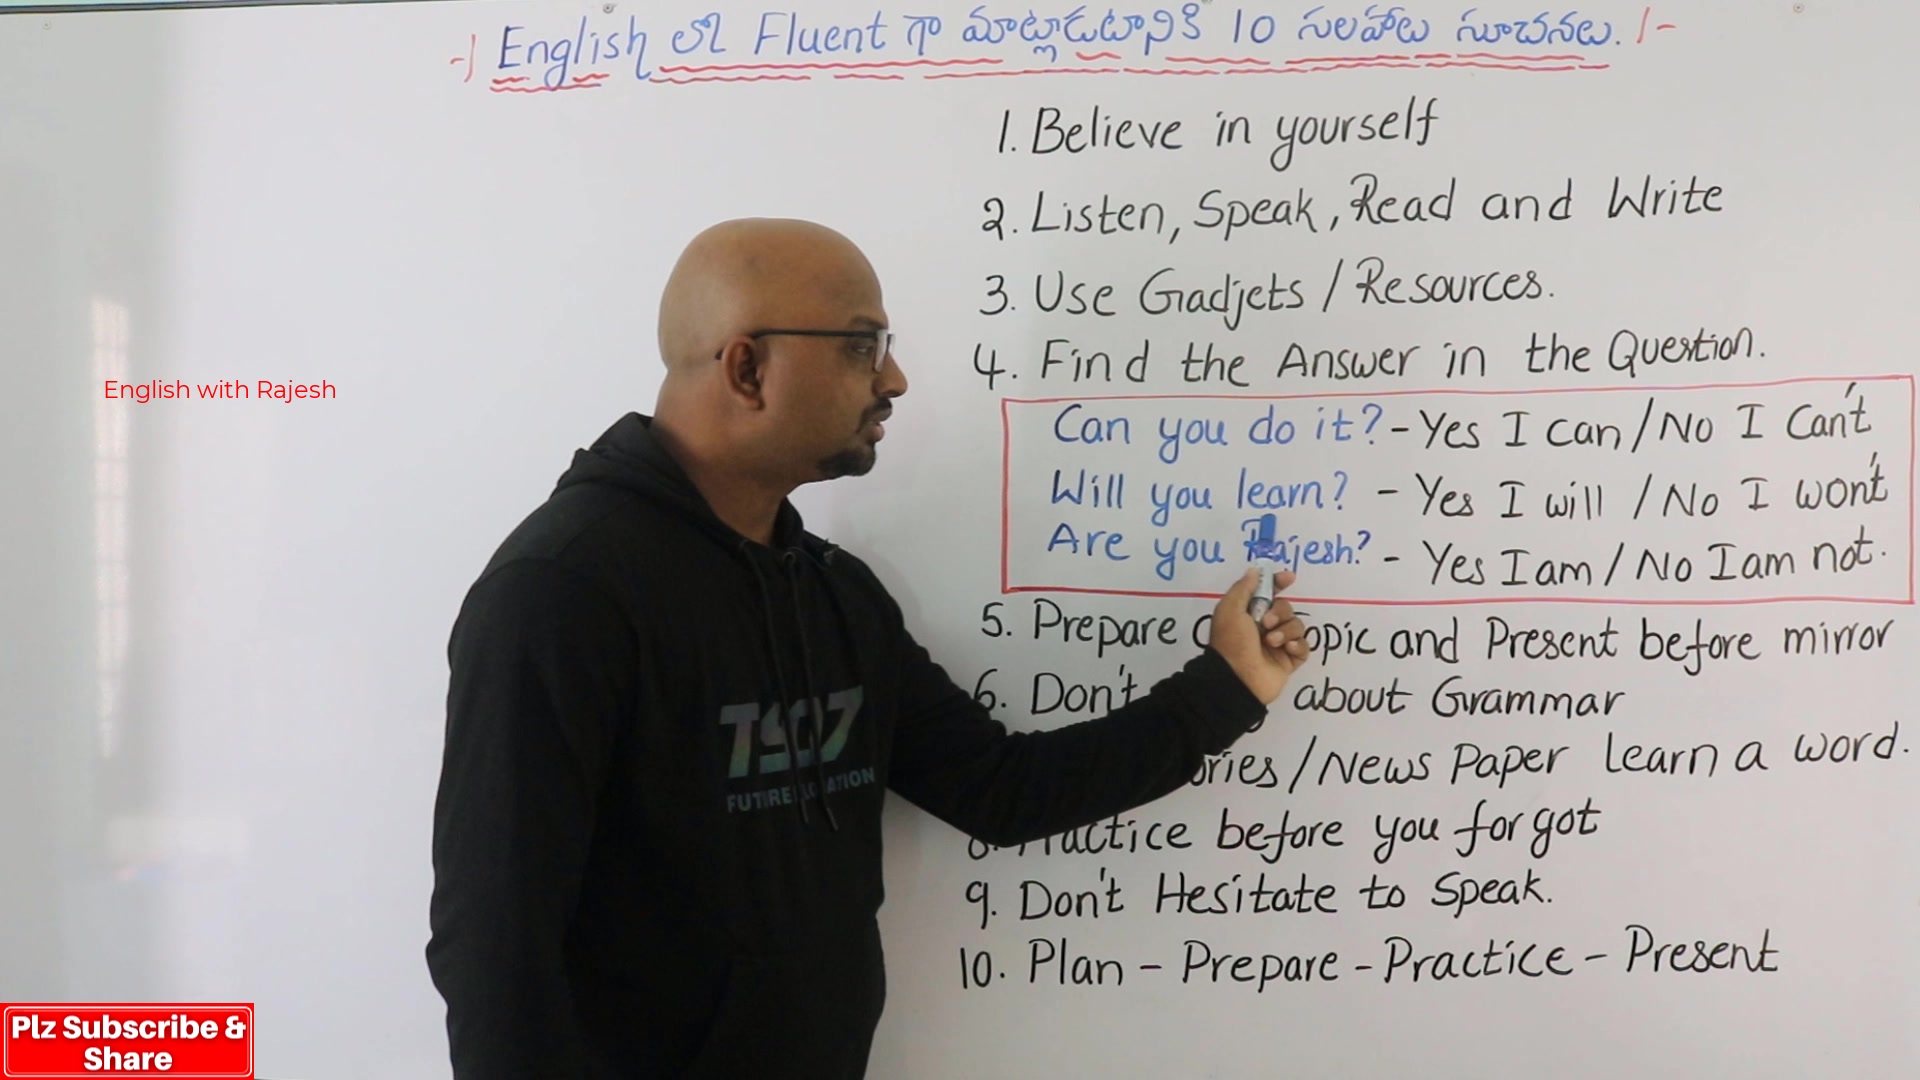 -| English లో Fluent గా మాట్లాడటానికి 10 సలహాలు సూచనలు. |-
1. Believe in yourself
2. Listen, Speak, Read and Write
3. Use Gadjets / Resources.
4. Find the Answer in the Question.
Can you do it? - Yes I can / No I Can't
Will you learn? - Yes I will / No I won't
Are you Rajesh? - Yes I am / No I am not.
5. Prepare Topic and Present before mirror
6. Don't about Grammar
/ News Paper learn a word.
8. Practice before you forgot
9. Don't Hesitate to Speak.
10. Plan - Prepare - Practice - Present
English with Rajesh
TSQ7
Plz Subscribe &
Share